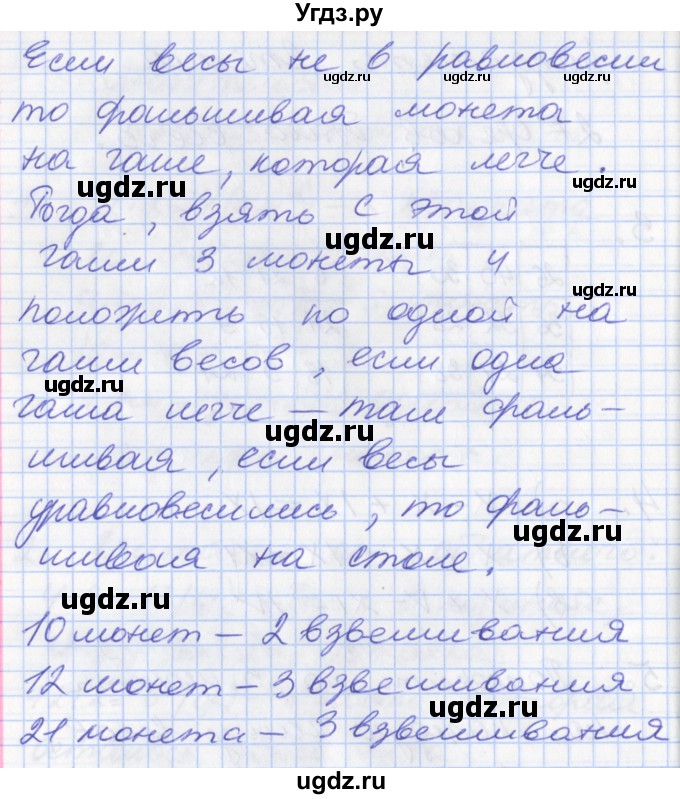 Угдз.ру
Если весы не в равновесии
ugdz.ru ugdz.ru ugdz.ru
то фальшивая монета
на чаше, которая легче.
ugdz.ru ugdz.ru
Тогда, взять с этой
ugdz.ru
чаши 3 монеты и
ugdz.ru
положить по одной на
чаши весов, если одна
ugdz.ru
чаша легче – там фаль-
ugdz.ru
шивая, если весы
уравновесились, то фаль-
ugdz.ru
шивая на столе.
ugdz.ru
10 монет – 2 взвешивания
12 монет – 3 взвешивания
ugdz.ru
21 монета – 3 взвешивания
ugdz.ru
ugdz.ru